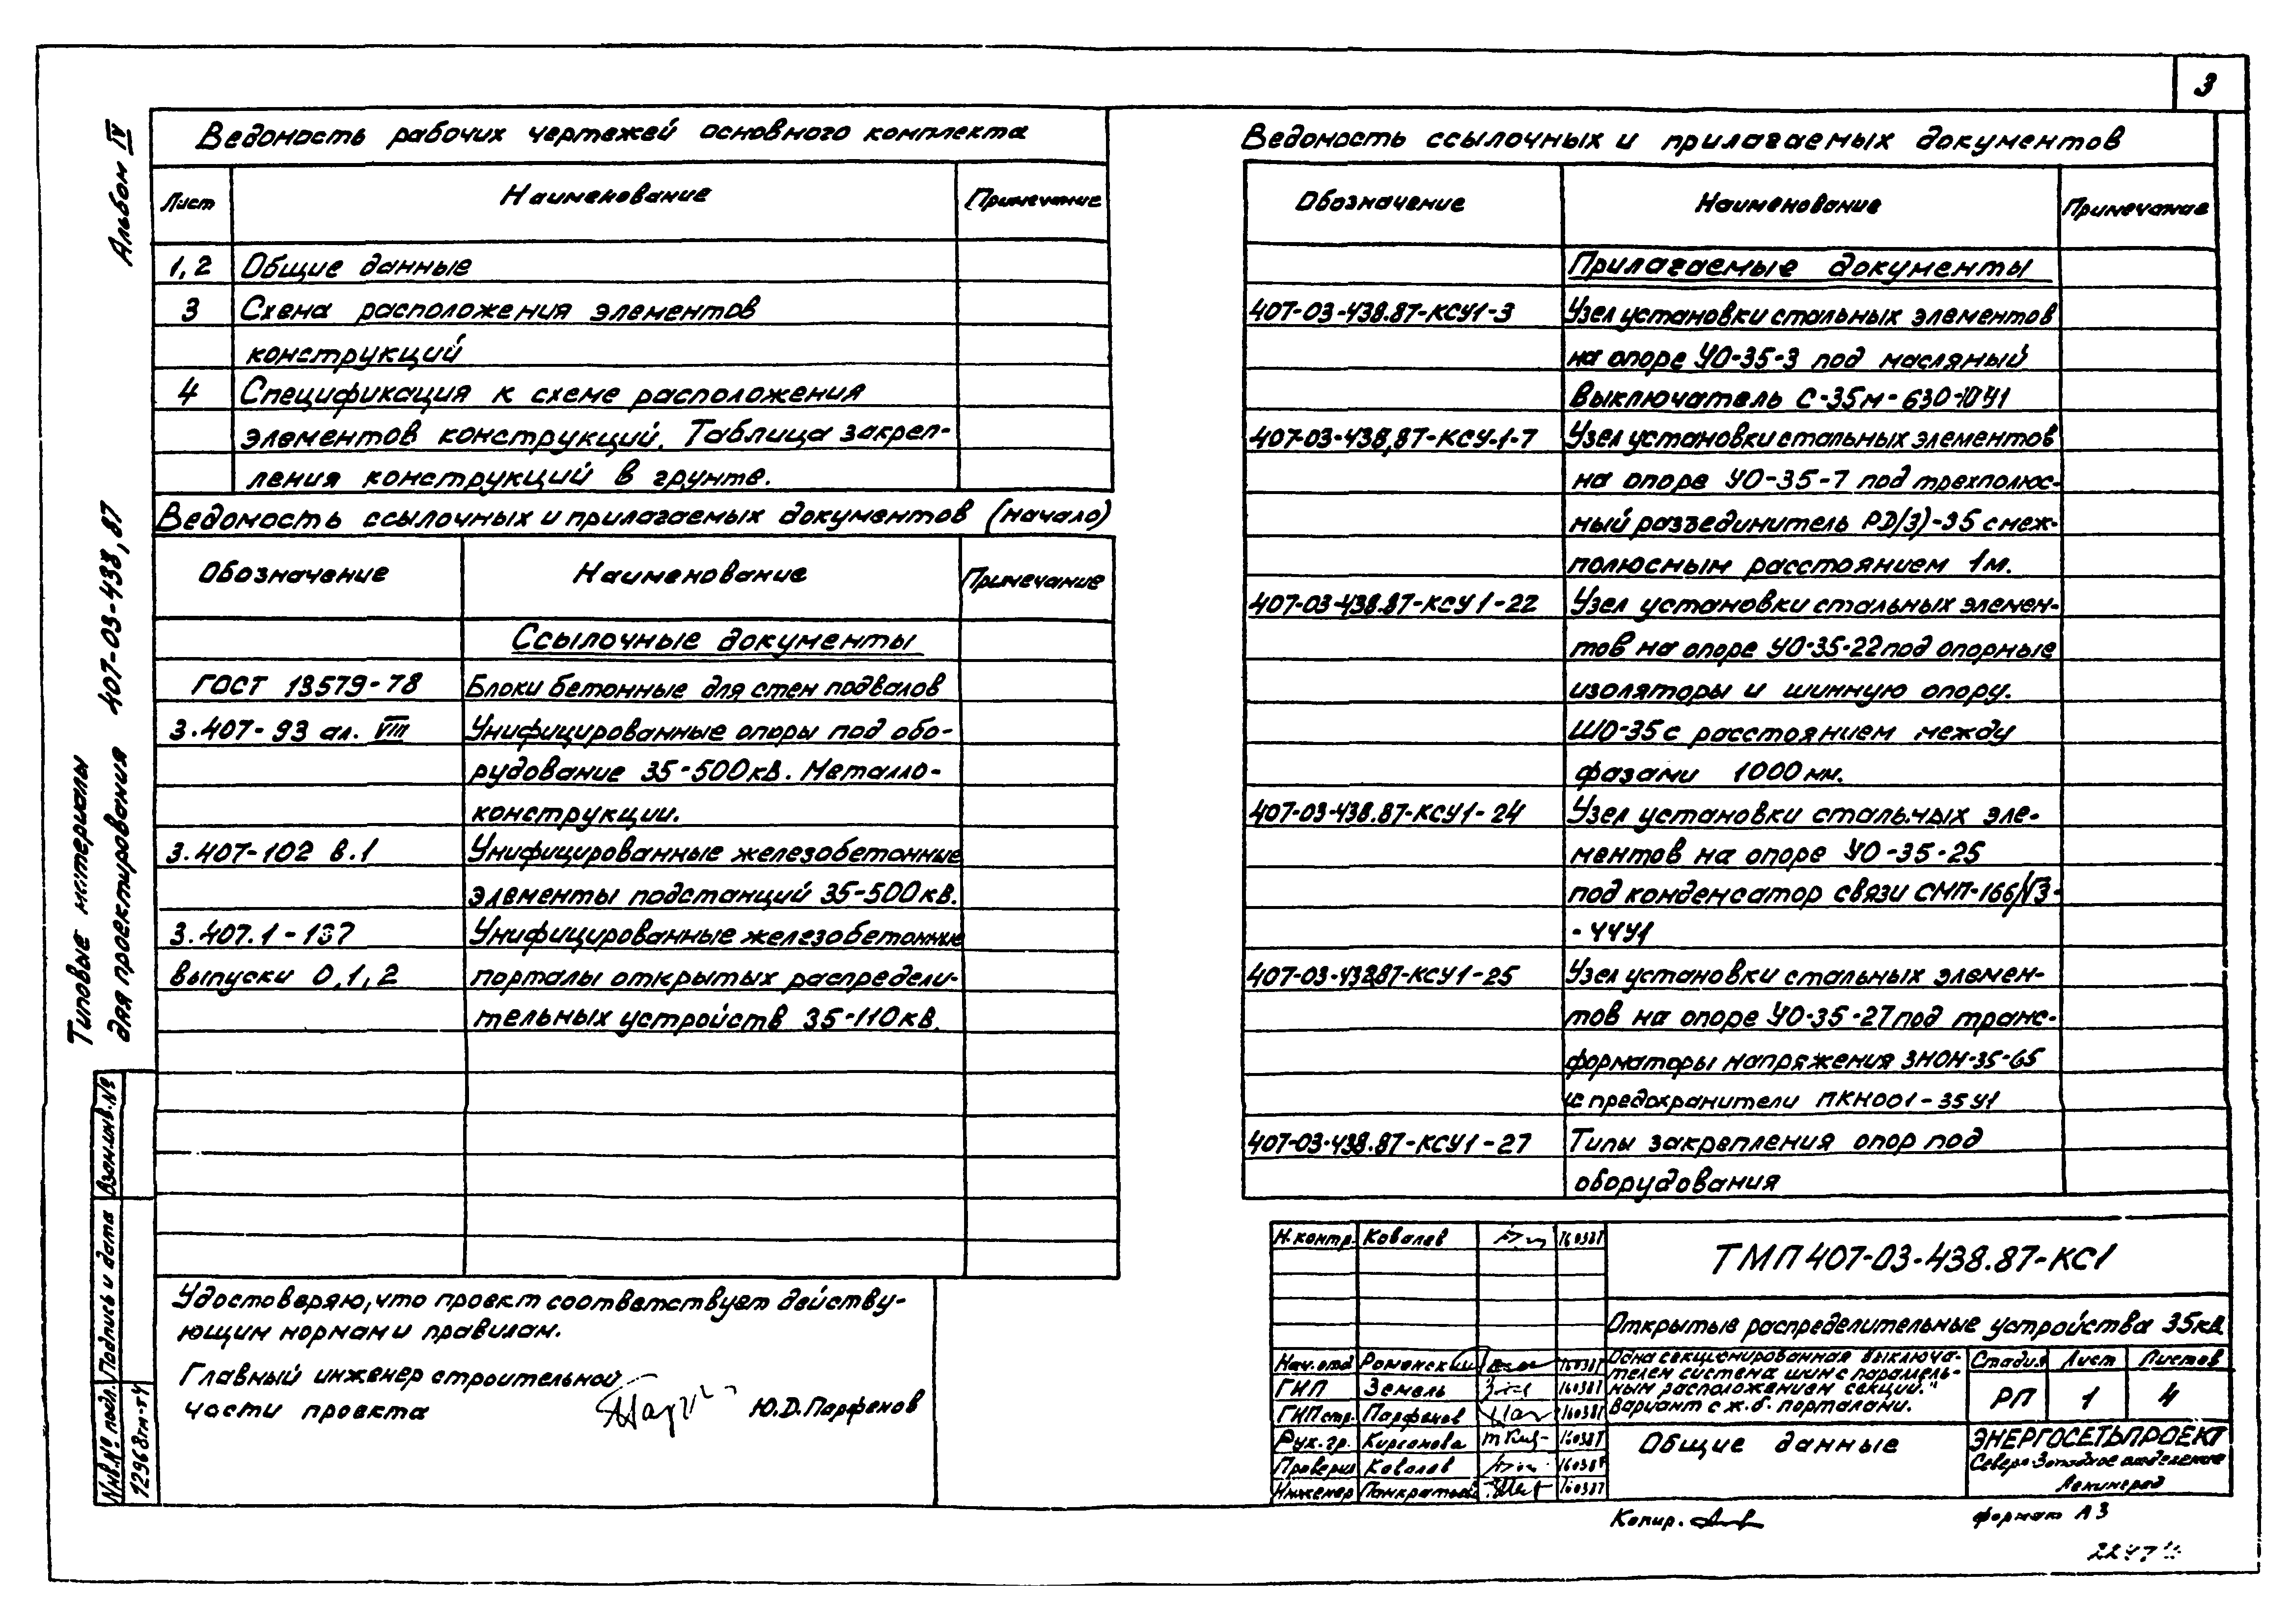 3
Альбом IV
Типовые материалы
для проектирования 407-03-438,87
Ведомость рабочих чертежей основного комплекта
Лист Наименование Примечание
1,2 Общие данные
3 Схема расположения элементов
конструкций
4 Спецификация к схеме расположения
элементов конструкций. Таблица закреп-
ления конструкций в грунте.
Ведомость ссылочных и прилагаемых документов (начало)
Обозначение Наименование Примечание
Ссылочные документы
ГОСТ 13579-78 Блоки бетонные для стен подвалов
3.407-93 ал. VIII Унифицированные опоры под обо-
рудование 35-500кв. Металло-
конструкции.
3.407-102 в.1 Унифицированные железобетонные
элементы подстанций 35-500кв.
3.407.1-137 Унифицированные железобетонные
выпуски 0,1,2 порталы открытых распредели-
тельных устройств 35-110кв.
Удостоверяю, что проект соответствует действу-
ющим нормам и правилам.
Главный инженер строительной
части проекта Ю.Д.Парфенов
Взам.инв.№
Подпись и дата
Инв.№ подл.
12968тм-т4
Ведомость ссылочных и прилагаемых документов
Обозначение Наименование Примечание
Прилагаемые документы
407-03-438.87-КСУ1-3 Узел установки стальных элементов
на опоре УО-35-3 под масляный
Выключатель С-35м-630-10У1
407-03-438,87-КСУ-1-7 Узел установки стальных элементов
на опоре УО-35-7 под трехполюс-
ный разъединитель РД(З)-35 с меж-
полюсным расстоянием 1м.
407-03-438.87-КСУ1-22 Узел установки стальных элемен-
тов на опоре УО-35-22 под опорные
изоляторы и шинную опору.
ШО-35 с расстоянием между
фазами 1000мм.
407-03-438.87-КСУ1-24 Узел установки стальных эле-
ментов на опоре УО-35-25
под конденсатор связи СМП-166/√3-
-ЧЧУ1
407-03-438.87-КСУ1-25 Узел установки стальных элемен-
тов на опоре УО-35-27 под транс-
форматоры напряжения ЗНОН-35-65
и предохранители ПКН001-35У1
407-03-438.87-КСУ1-27 Типы закрепления опор под
оборудования
Н.контр. Ковалев 160387
ТМП 407-03-438.87-КС1
Открытые распределительные устройства 35кв
Нач.отд Роменский 160387
ГИП Земель 160387
ГИП стр. Парфенов 160387
Рук.гр. Кирсанова 160387
Проверил Ковалев 160387
Инженер 160387
Одна секционированная выключа-
телем система шин с параллель-
ным расположением секций."
Вариант с ж.б. порталами.
Стадия Лист Листов
РП 1 4
Общие данные
ЭНЕРГОСЕТЬПРОЕКТ
Северо-Западное отделение
Ленинград
Копир.
формат А3